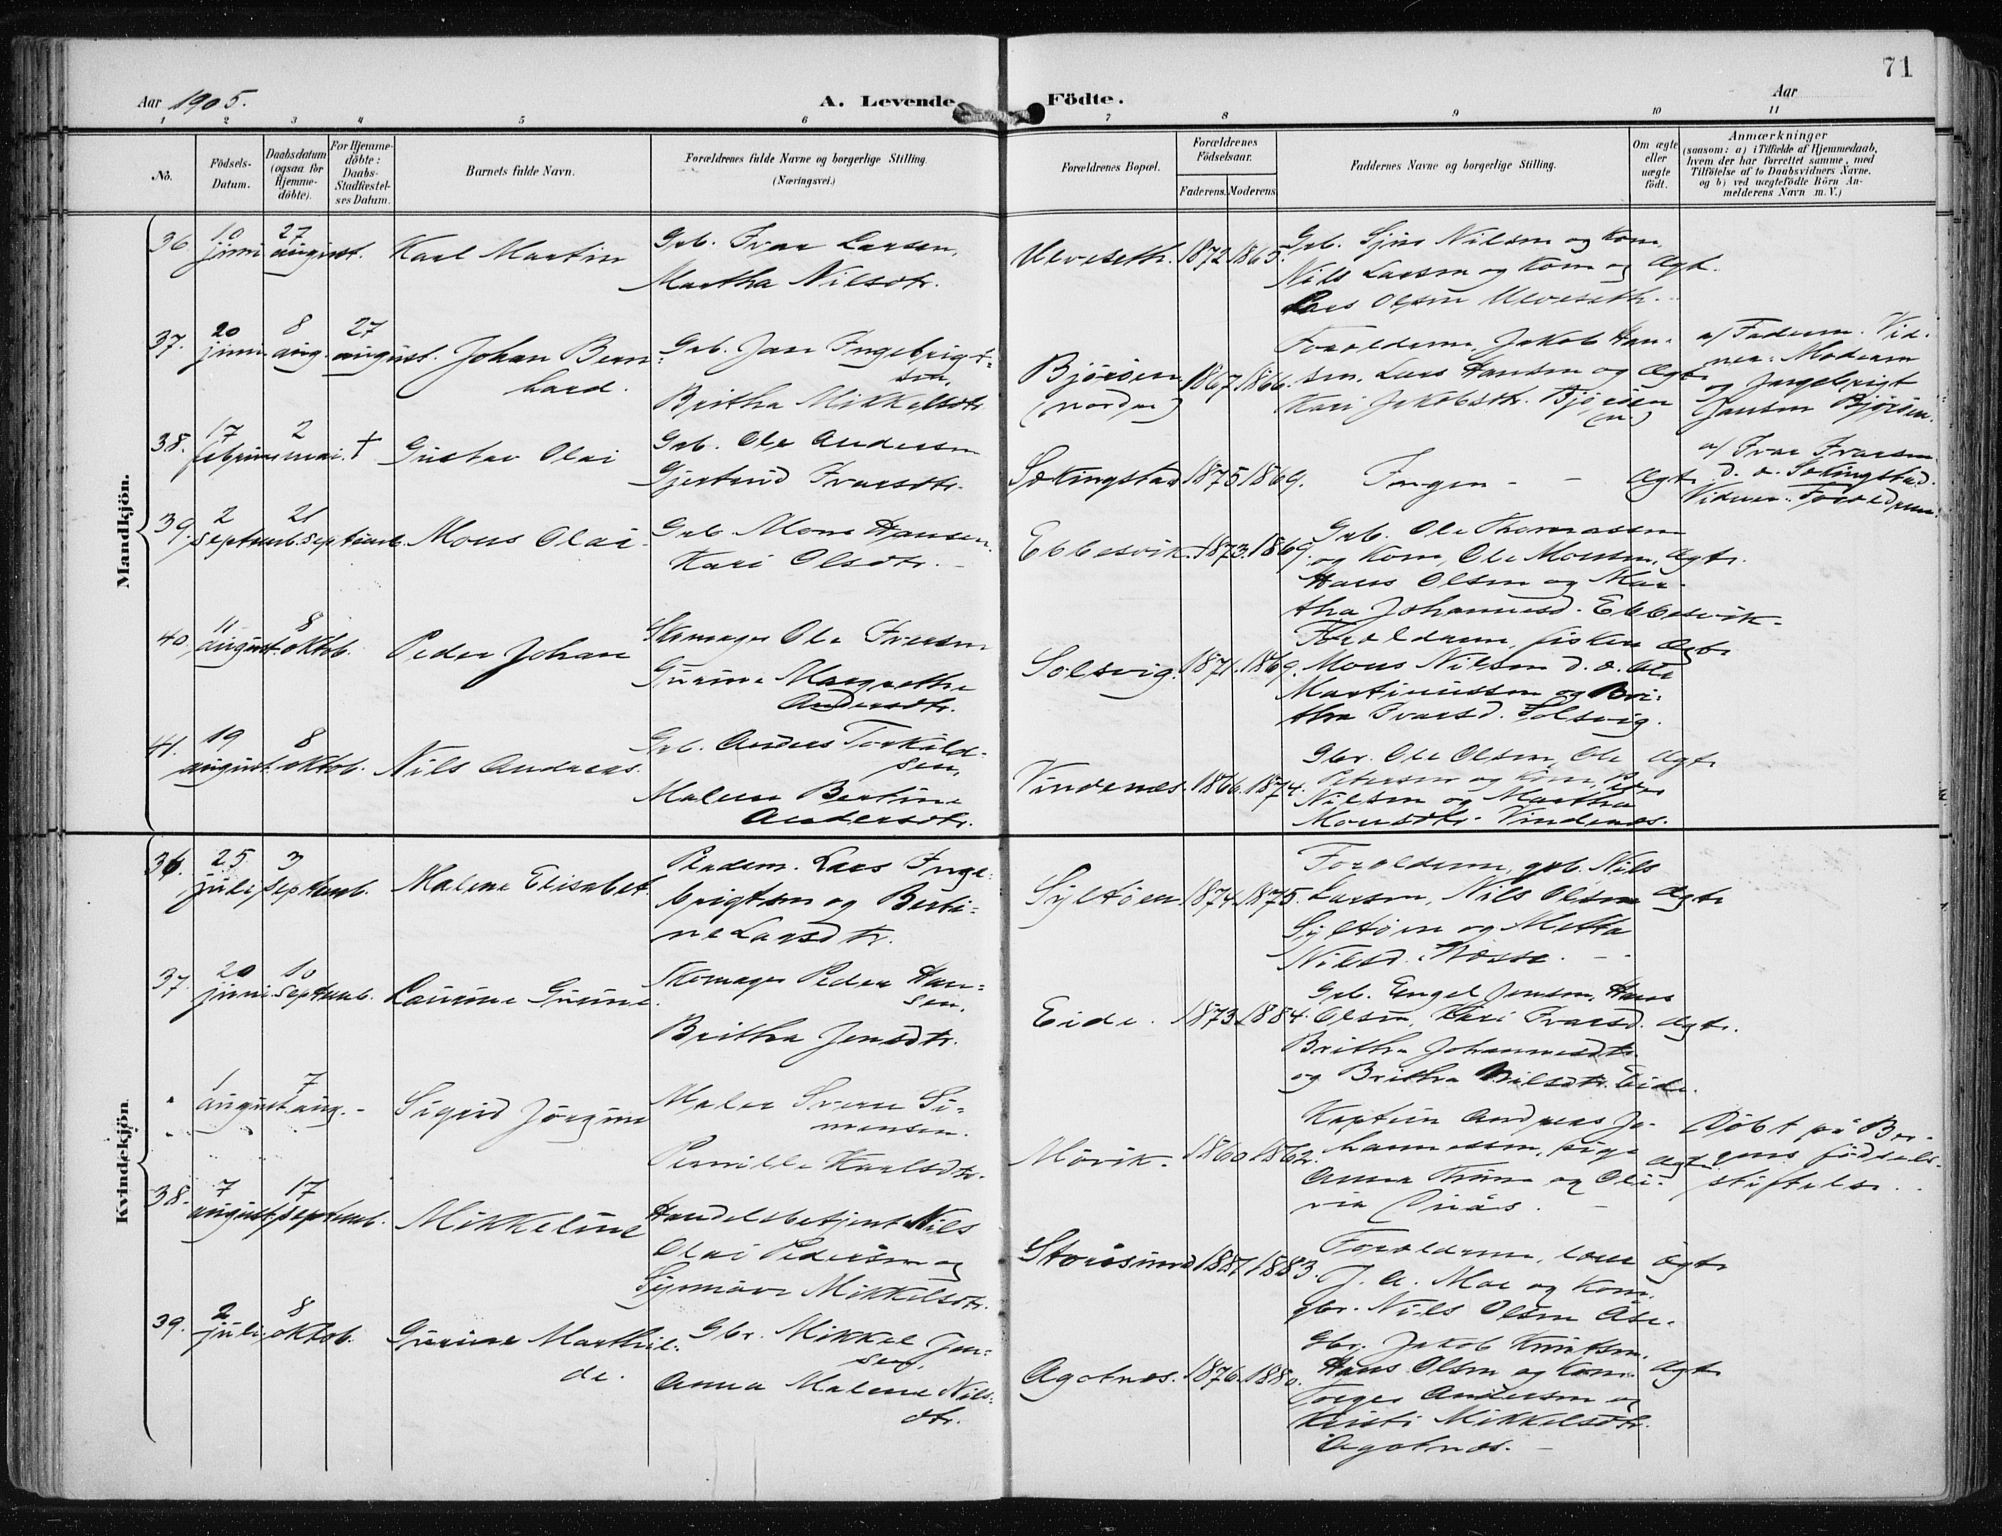 71
Aar 1905.
A. Levende Födte.
Aar
1 2 3 4 5 6 7 8 9 10 11
No.
Födsels-Datum.
Daabsdatum (ogsaa for Hjemme-döbte).
For Hjemme-döbte: Daabs-Stadfæstel-ses Datum.
Barnets fulde Navn.
Forældrenes fulde Navne og borgerlige Stilling.
(Næringsvei.)
Forældrenes Bopæl.
Forældrenes Födselsaar.
Faderens. Moderens.
Faddernes Navne og borgerlige Stilling.
Om ægte eller uægte födt.
Anmærkninger
(saasom: a) i Tilfælde af Hjemmedaab,
hvem der har forrettet samme, med
Tilföielse af to Daabsvidners Navne,
og b) ved uægtefödte Börn An-
melderens Navn m. V.)
Mandkjön.
36. 10 juni 27 august. Karl Martin
Grb. Ivar Larsen,
Martha Nilsdtr.
Ulveseth. 1872 1865.
Grb. Sjur Nilsen og Kone,
Nils Larsen og Kone og
Lars Olsen Ulveseth.
ægt.
37. 20 juni 8 aug. 27 august. Johan Bern-
hard.
Grb. Jan Ingebrigt-
sen,
Britha Mikkelsdtr.
Bjørøen
(nordre)
1867 1866.
Forældrene, Jakob Han-
sen, Lars Hansen og
Kari Jakobsdtr. Bjørøen
(n)
ægte
a) Faderen. Vid-
ner: Moderen
og Ingebrigt
Jansen Bjørøen.
38. 17 februar 2 mai. † Gustav Olai
Grb. Ole Andersen
Gjertrud Ivarsdtr.
Sekingstad 1875 1869.
Ingen - -
ægte
a) Ivar Ivarsen
d. e. Sekingstad.
Vidner: Forældrene.
39. 2 septemb. 21 septemb. Mons Olai.
Grb. Mons Hansen.
Kari Olsdtr. -
Ebbesvik. 1873. 1869.
Grb. Ole Thomassen
og Kone, Ole Monsen,
Hans Olsen og Mar-
tha Johannesd. Ebbesvik.
ægte.
40. 11 august. 8 oktob. Peder Johan
Skomager Ole Iversen
Gurine Margrethe
Andersdtr.
Solsvig. 1871. 1869.
Forældrene, fisker
Mons Nilsen d. e. Ole
Martinussen og Bri-
tha Ivarsd. Solsvig.
ægte
41. 19 august. 8 oktob. Nils Andreas.
Grb. Anders Torkild-
sen,
Malene Bertine
Andersdtr.
Vindenes. 1866. 1874.
Gbr. Ole Olsen, Ole
Petersen og Kone,
Nilsen og Martha
Monsdtr. Vindenes.
ægte
Kvindekjön.
36. 25 juli 3 septemb. Malene Elisabet.
Pladsm. Lars Inge-
brigtsen og Berti-
ne Larsdtr.
Syltøen 1874. 1875.
Forældrene, grb. Nils
Larsen, Nils Olsen
Syltøen og Metta
Nilsd.
ægte
37. 20 juni 10 septemb. Laurine Gurine.
Skomager Peder Han-
sen,
Britha Jensdtr.
Eide. 1873. 1884.
Grb. Engel Jensen, Hans
Olsen, Kari Ivarsd.
Britha Johannesdtr.
og Britha Nilsdtr. Eide.
ægte.
1 august. 7 aug. - Sigrid Jørgine
Maler Sverre Si-
monsen.
Pernille Karlsdtr.
Mørvik. 1860 1862.
Kaptein Andreas Jo-
hannessen, pige
Anna Trine og Oli-
via
ægte
Døbt på Ber-
gens fødsels-
stiftelse.
38. 7 august 17 septemb. Mikkeline
Handelsbetjent Nils
Olai Pedersen og
Synnøve Mikkelsdtr.
Storesund 1881. 1883.
Forældrene,
J. A. Moe og Kone,
gbr. Nils Olsen
ægte
39. 2 juli. 8 oktob. Gurine Marthil-
de.
Gbr. Mikkel Jen-
sen,
Anna Malene Nils-
dtr.
Agotnes. 1876. 1880.
Gbr. Jakob Knutsen,
Hans Olsen og Kone
Torger Andersen og
Kristi Mikkelsdtr.
Agotnes. -
ægte